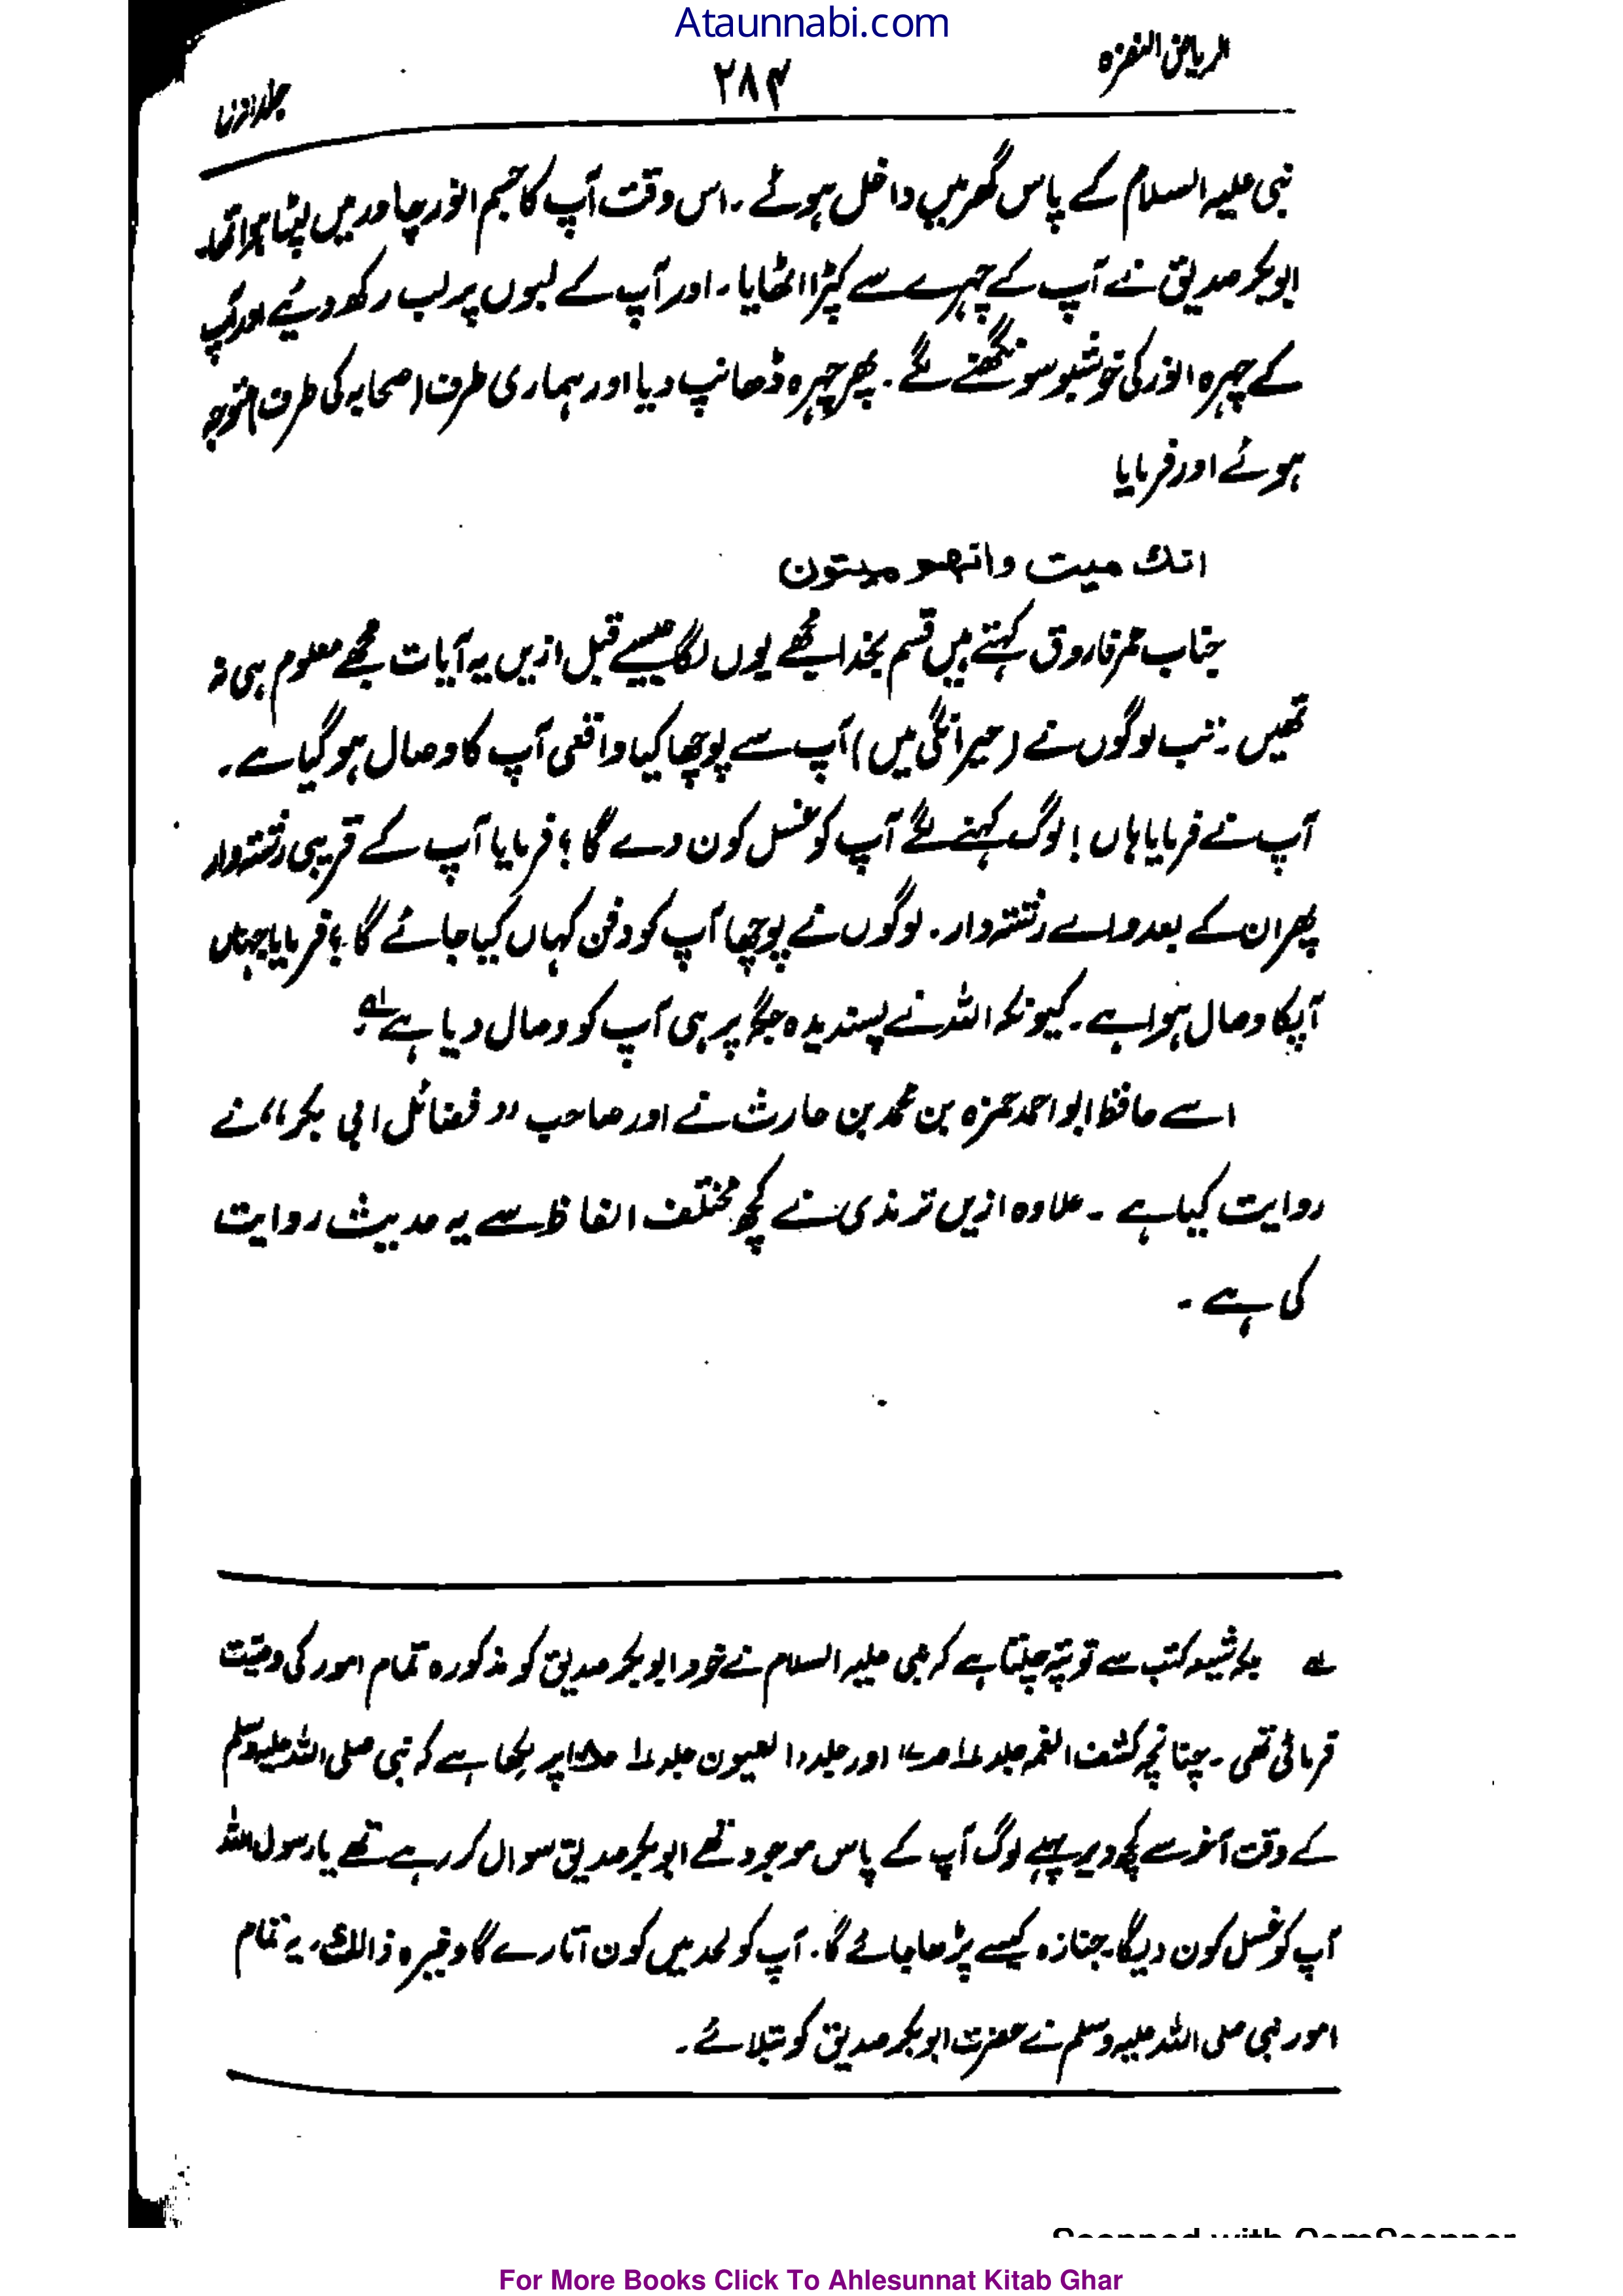 Ataunnabi.com
الریاض النضرہ
۲۸۴
نبی علیہ السلام کے پاس گھر میں داخل ہوئے ۔ اس وقت آپ کا جسم انور چادر میں لپٹا ہوا تھا۔
ابوبکر صدیق نے آپ کے چہرے سے کپڑا اٹھایا ۔ اور آپ کے لبوں پر لب رکھ دیئے اور آپ
کے چہرہ انور کی خوشبو سونگھنے لگے ۔ پھر چہرہ ڈھانپ دیا اور ہماری طرف (صحابہ کی طرف) متوجہ
ہوئے اور فرمایا
انك میت وانهم میتون
جناب عمر فاروق کہتے ہیں قسم بخدا مجھے یوں لگا جیسے قبل ازیں یہ آیات مجھے معلوم ہی نہ
تھیں ۔ تب لوگوں نے (حیرانگی میں) آپ سے پوچھا کیا واقعی آپ کا وصال ہو گیا ہے ۔
آپ نے فرمایا ہاں ! لوگ کہنے لگے آپ کو غسل کون دے گا ؟ فرمایا آپ کے قریبی رشتہ دار
پھر ان کے بعد والے رشتہ دار ۔ لوگوں نے پوچھا آپ کو دفن کہاں کیا جائے گا ؟ فرمایا جہاں
آپکا وصال ہوا ہے ۔ کیونکہ اللہ نے پسندیدہ جگہ پر ہی آپ کو وصال دیا ہے ۔ لے
اسے حافظ ابو احمد حمزہ بن محمد بن حارث نے اور صاحب ” فضائل ابی بکر “ نے
روایت کیا ہے ۔ علاوہ ازیں ترمذی نے کچھ مختلف الفاظ سے یہ حدیث روایت
کی ہے ۔
لے بلکہ شیعہ کتب سے تو پتہ چلتا ہے کہ نبی علیہ السلام نے خود ابو بکر صدیق کو مذکورہ تمام امور کی وصیت
فرمائی تھی ۔ چنانچہ کشف الغمہ جلد ۱ اور جلاء العیون جلد ۱ پر لکھا ہے کہ نبی صلی اللہ علیہ وسلم
کے وقت آخر سے کچھ دیر پہلے لوگ آپ کے پاس موجود تھے ابو بکر صدیق سوال کر رہے تھے یا رسول اللہ
آپ کو غسل کون دیگا ۔ جنازہ کیسے پڑھا جائے گا ۔ آپ کو لحد میں کون اتارے گا وغیرہ ذالک ۔ یہ تمام
امور نبی صلی اللہ علیہ وسلم نے حضرت ابو بکر صدیق کو بتلائے ۔
Scanned with CamScanner
For More Books Click To Ahlesunnat Kitab Ghar